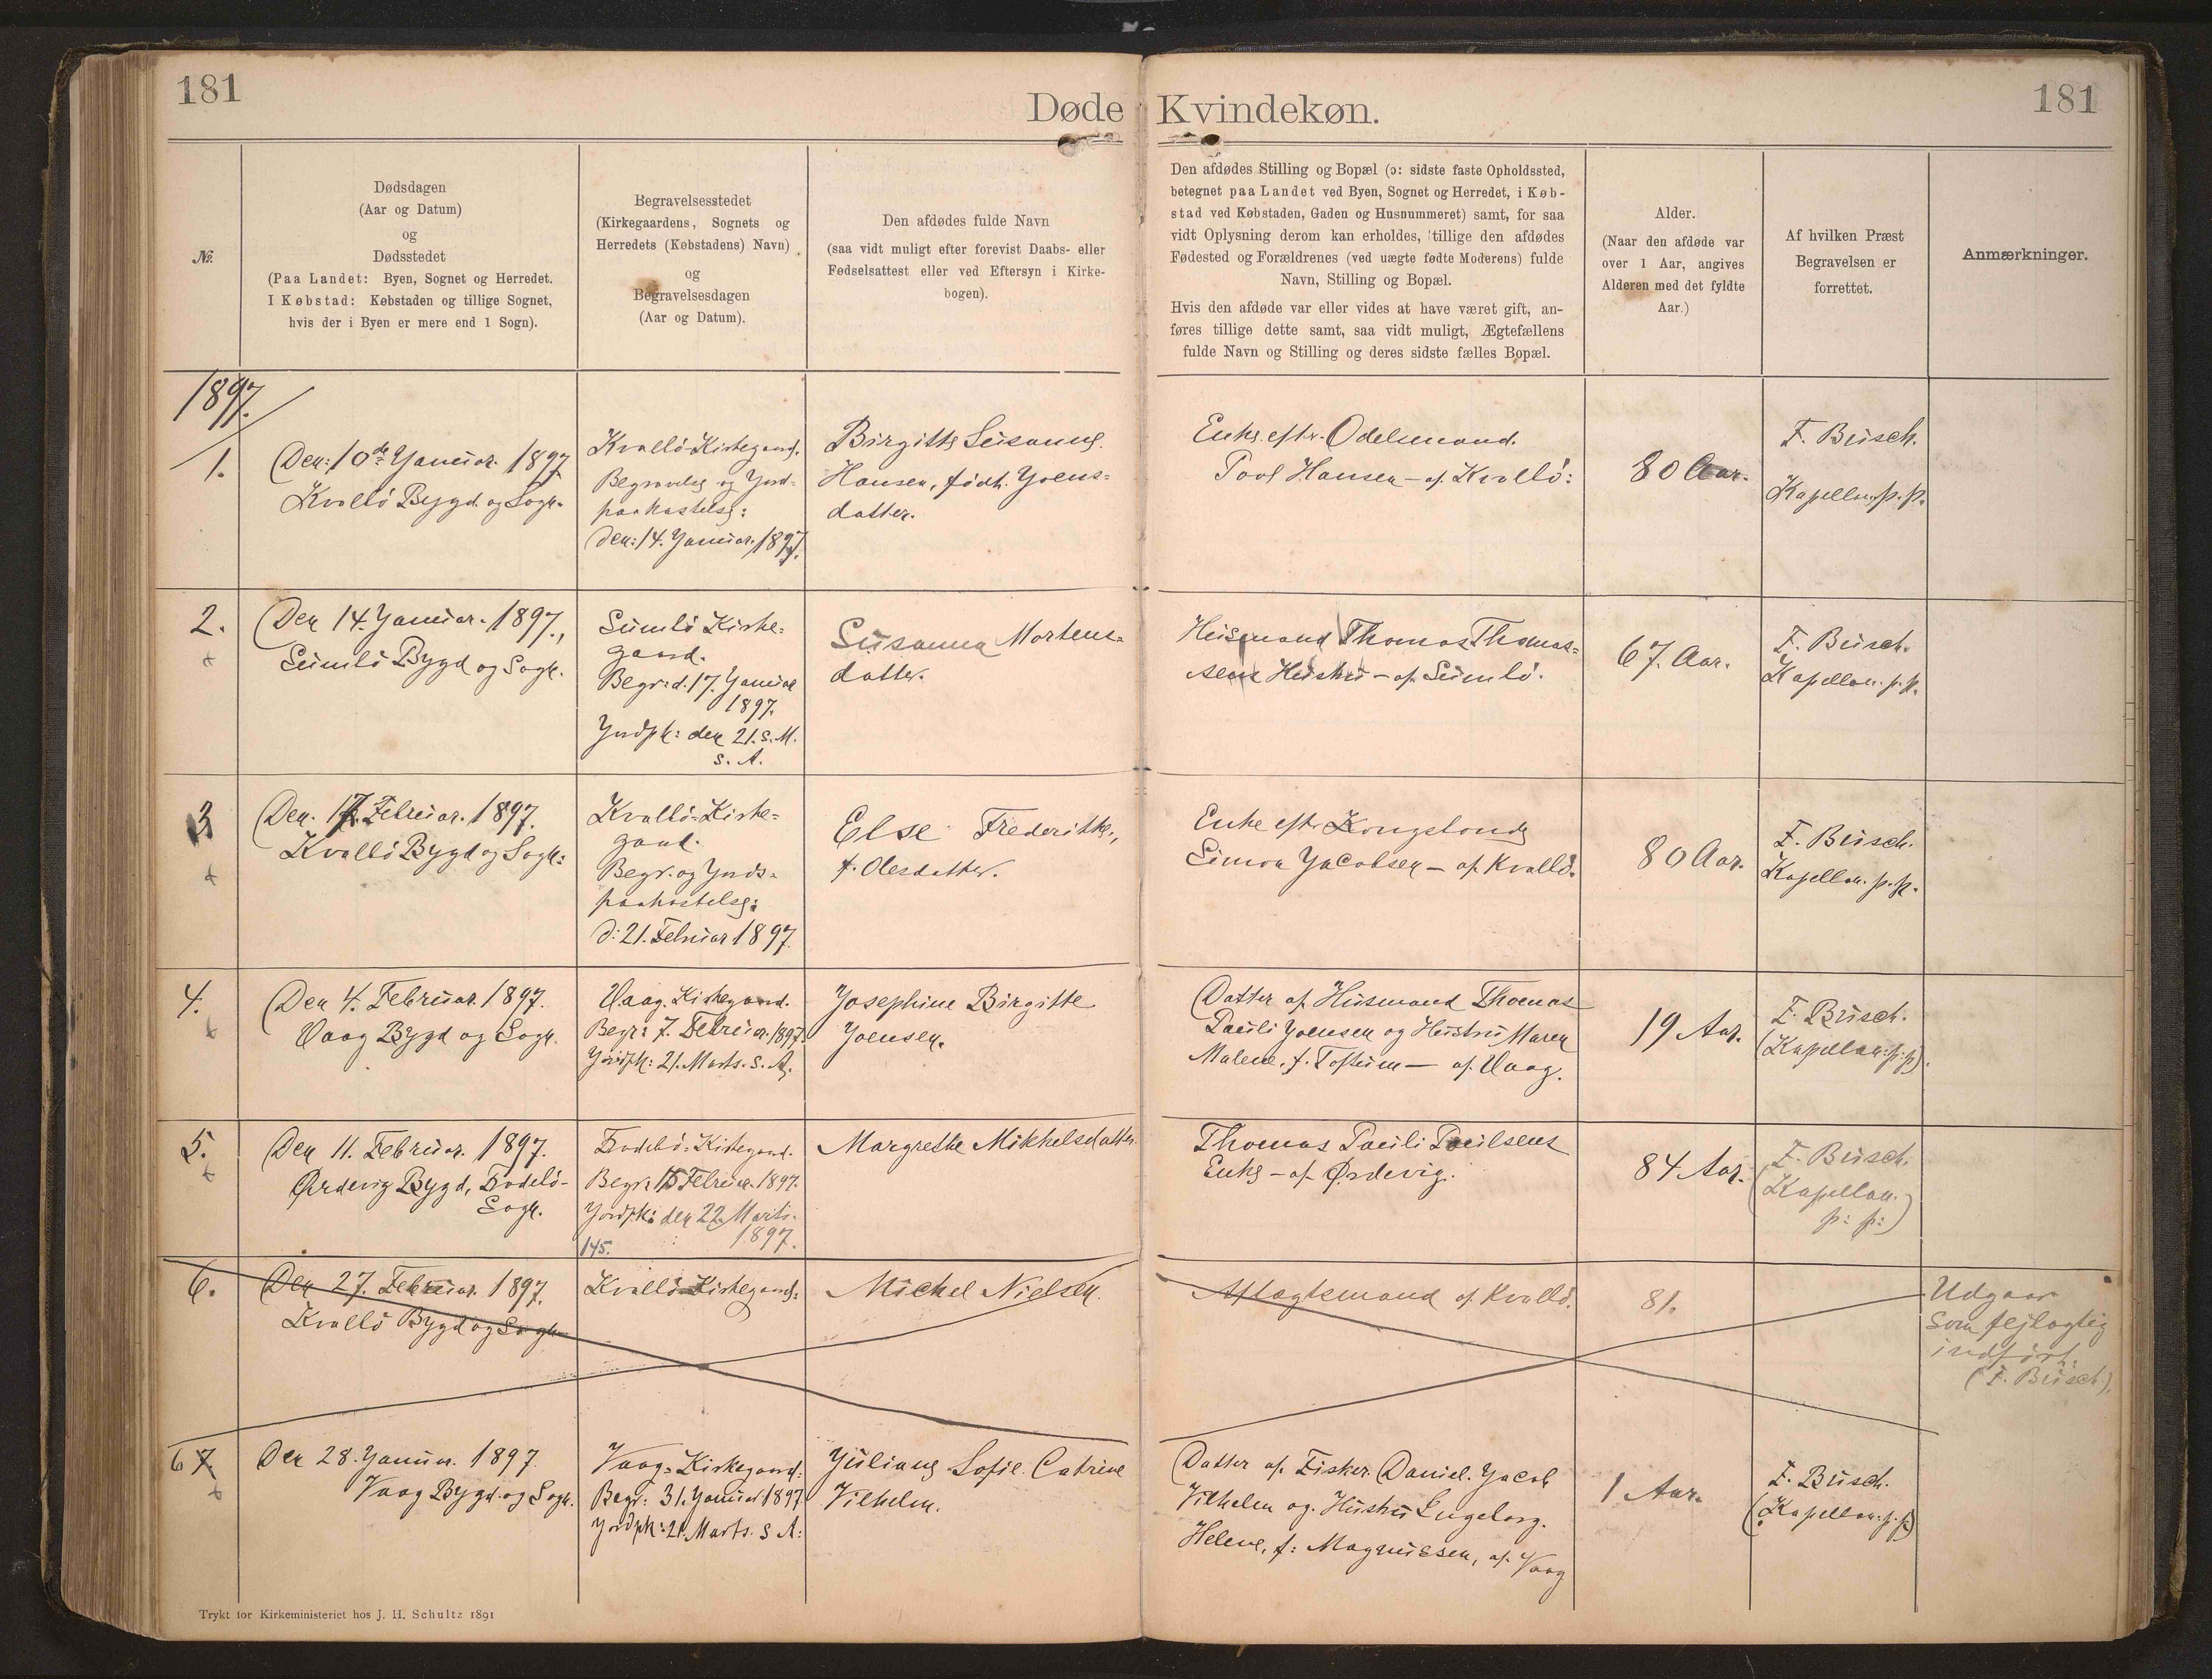 181
Døde Kvindekøn.
181
№.
Dødsdagen
(Aar og Datum)
og
Dødsstedet
(Paa Landet: Byen, Sognet og Herredet.
I Købstad: Købstaden og tillige Sognet,
hvis der i Byen er mere end 1 Sogn).
Begravelsesstedet
(Kirkegaardens, Sognets og
Herredets (Købstadens) Navn)
og
Begravelsesdagen
(Aar og Datum).
Den afdødes fulde Navn
(saa vidt muligt efter forevist Daabs- eller
Fødselsattest eller ved Eftersyn i Kirke-
bogen).
Den afdødes Stilling og Bopæl (ɔ: sidste faste Opholdssted,
betegnet paa Landet ved Byen, Sognet og Herredet, i Køb-
stad ved Købstaden, Gaden og Husnummeret) samt, for saa
vidt Oplysning derom kan erholdes, tillige den afdødes
Fødested og Forældrenes (ved uægte fødte Moderens) fulde
Navn, Stilling og Bopæl.
Hvis den afdøde var eller vides at have været gift, an-
føres tillige dette samt, saa vidt muligt, Ægtefællens
fulde Navn og Stilling og deres sidste fælles Bopæl.
Alder.
(Naar den afdøde var
over 1 Aar, angives
Alderen med det fyldte
Aar.)
Af hvilken Præst
Begravelsen er
forrettet.
Anmærkninger.
1897.
1.
Den: 10de Januar. 1897
Kvalbö Bygd og Sogn.
Kvalbö-Kirkegaard.
Begravelse og Jord-
paakastelse:
den: 14. Januar. 1897.
Birgitte Susanne
Hansen, födt. Joens-
datter.
Enke eftr. Odelsmand.
Poul Hansen - af Kvalbö:
80 Aar.
F. Büsch.
Kapellan. p. p.
2.
Den 14. Januar. 1897.,
Sumbö Bygd og Sogn.
Sumbö Kirke-
gaard.
Begr: d. 17. Januar
1897.
Jordpk: den 21. s. M.
s. A.
Susanna Mortens-
datter.
Husmand Thomas Thomas-
sens Hustru - af Sumbö.
67. Aar.
F. Büsch.
Kapellan. p. p.
3
Den. 17. Februar. 1897.
Kvalbö Bygd og Sogn:
Kvalbö-Kirke-
gaard.
Begr. og Jords-
paakastelse:
d: 21. Februar 1897.
Else Frederikke,
f. Olesdatter.
Enke eftr Kongsbonde
Simon Jacobsen - af Kvalbö.
80 Aar.
F. Büsch.
Kapellan. p. p.
4.
Den 4. Februar. 1897.
Vaag Bygd og Sogn.
Vaag. Kirkegaard.
Begr: 7. Februar. 1897.
Jordpk: 21. Marts. s. A.
Josephine Birgitte
Joensen.
Datter af Husmand Thomas
Pauli Joensen og Hustru Maren
Malene, f. Toftum - af Vaag.
19 Aar.
F. Büsch.
(Kapellan: p: p).
5.
Den 11. Februar. 1897.
Ørdevig Bygd, Frodebö-
Sogn.
Frodebö-Kirkegaard.
Begr: 15 Februar. 1897.
Jordpk: den 22. Marts.
1897.
145.
Margrethe Mikkelsdatter.
Thomas Pauli Poulsens
Enke - af Ørdevig.
84 Aar.
F. Büsch.
(Kapellan.
p: p:)
6.
Den 27. Februar. 1897.
Kvalbö Bygd og Sogn
Kvalbö-Kirkegaard:
Michel Nielsen.
Aftægtsmand af Kvalbö.
81.
Udgaar
som fejlagtig
indført.
(F. Büsch).
6 7.
Den 28. Januar. 1897.
Vaag Bygd. og Sogn.
Vaag-Kirkegaard:
Begr: 31. Januar 1897
Jordpk: 21. Marts. s A:
Juliane Sofie Catrine
Vilhelm.
Datter af. Fisker. Daniel. Jacob
Vilhelm og. Hustru Ingeborg.
Helene, f: Magnussen, af. Vaag
1 Aar.
F. Büsch.
(Kapellan: p: p)
Trykt for Kirkeministeriet hos J. H. Schultz 1891